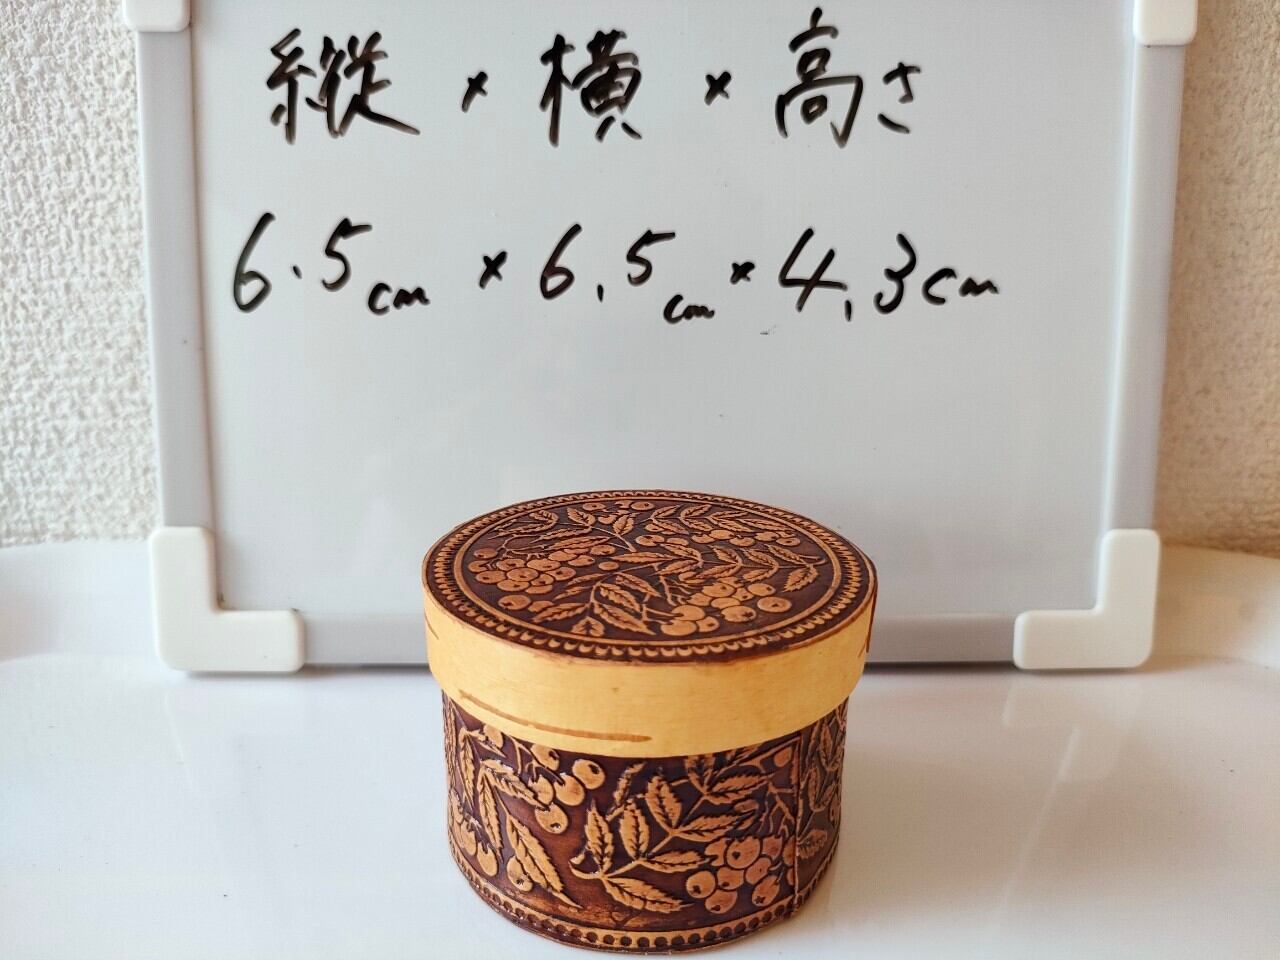 縦 × 横 × 高さ
6.5cm × 6.5cm × 4.3cm